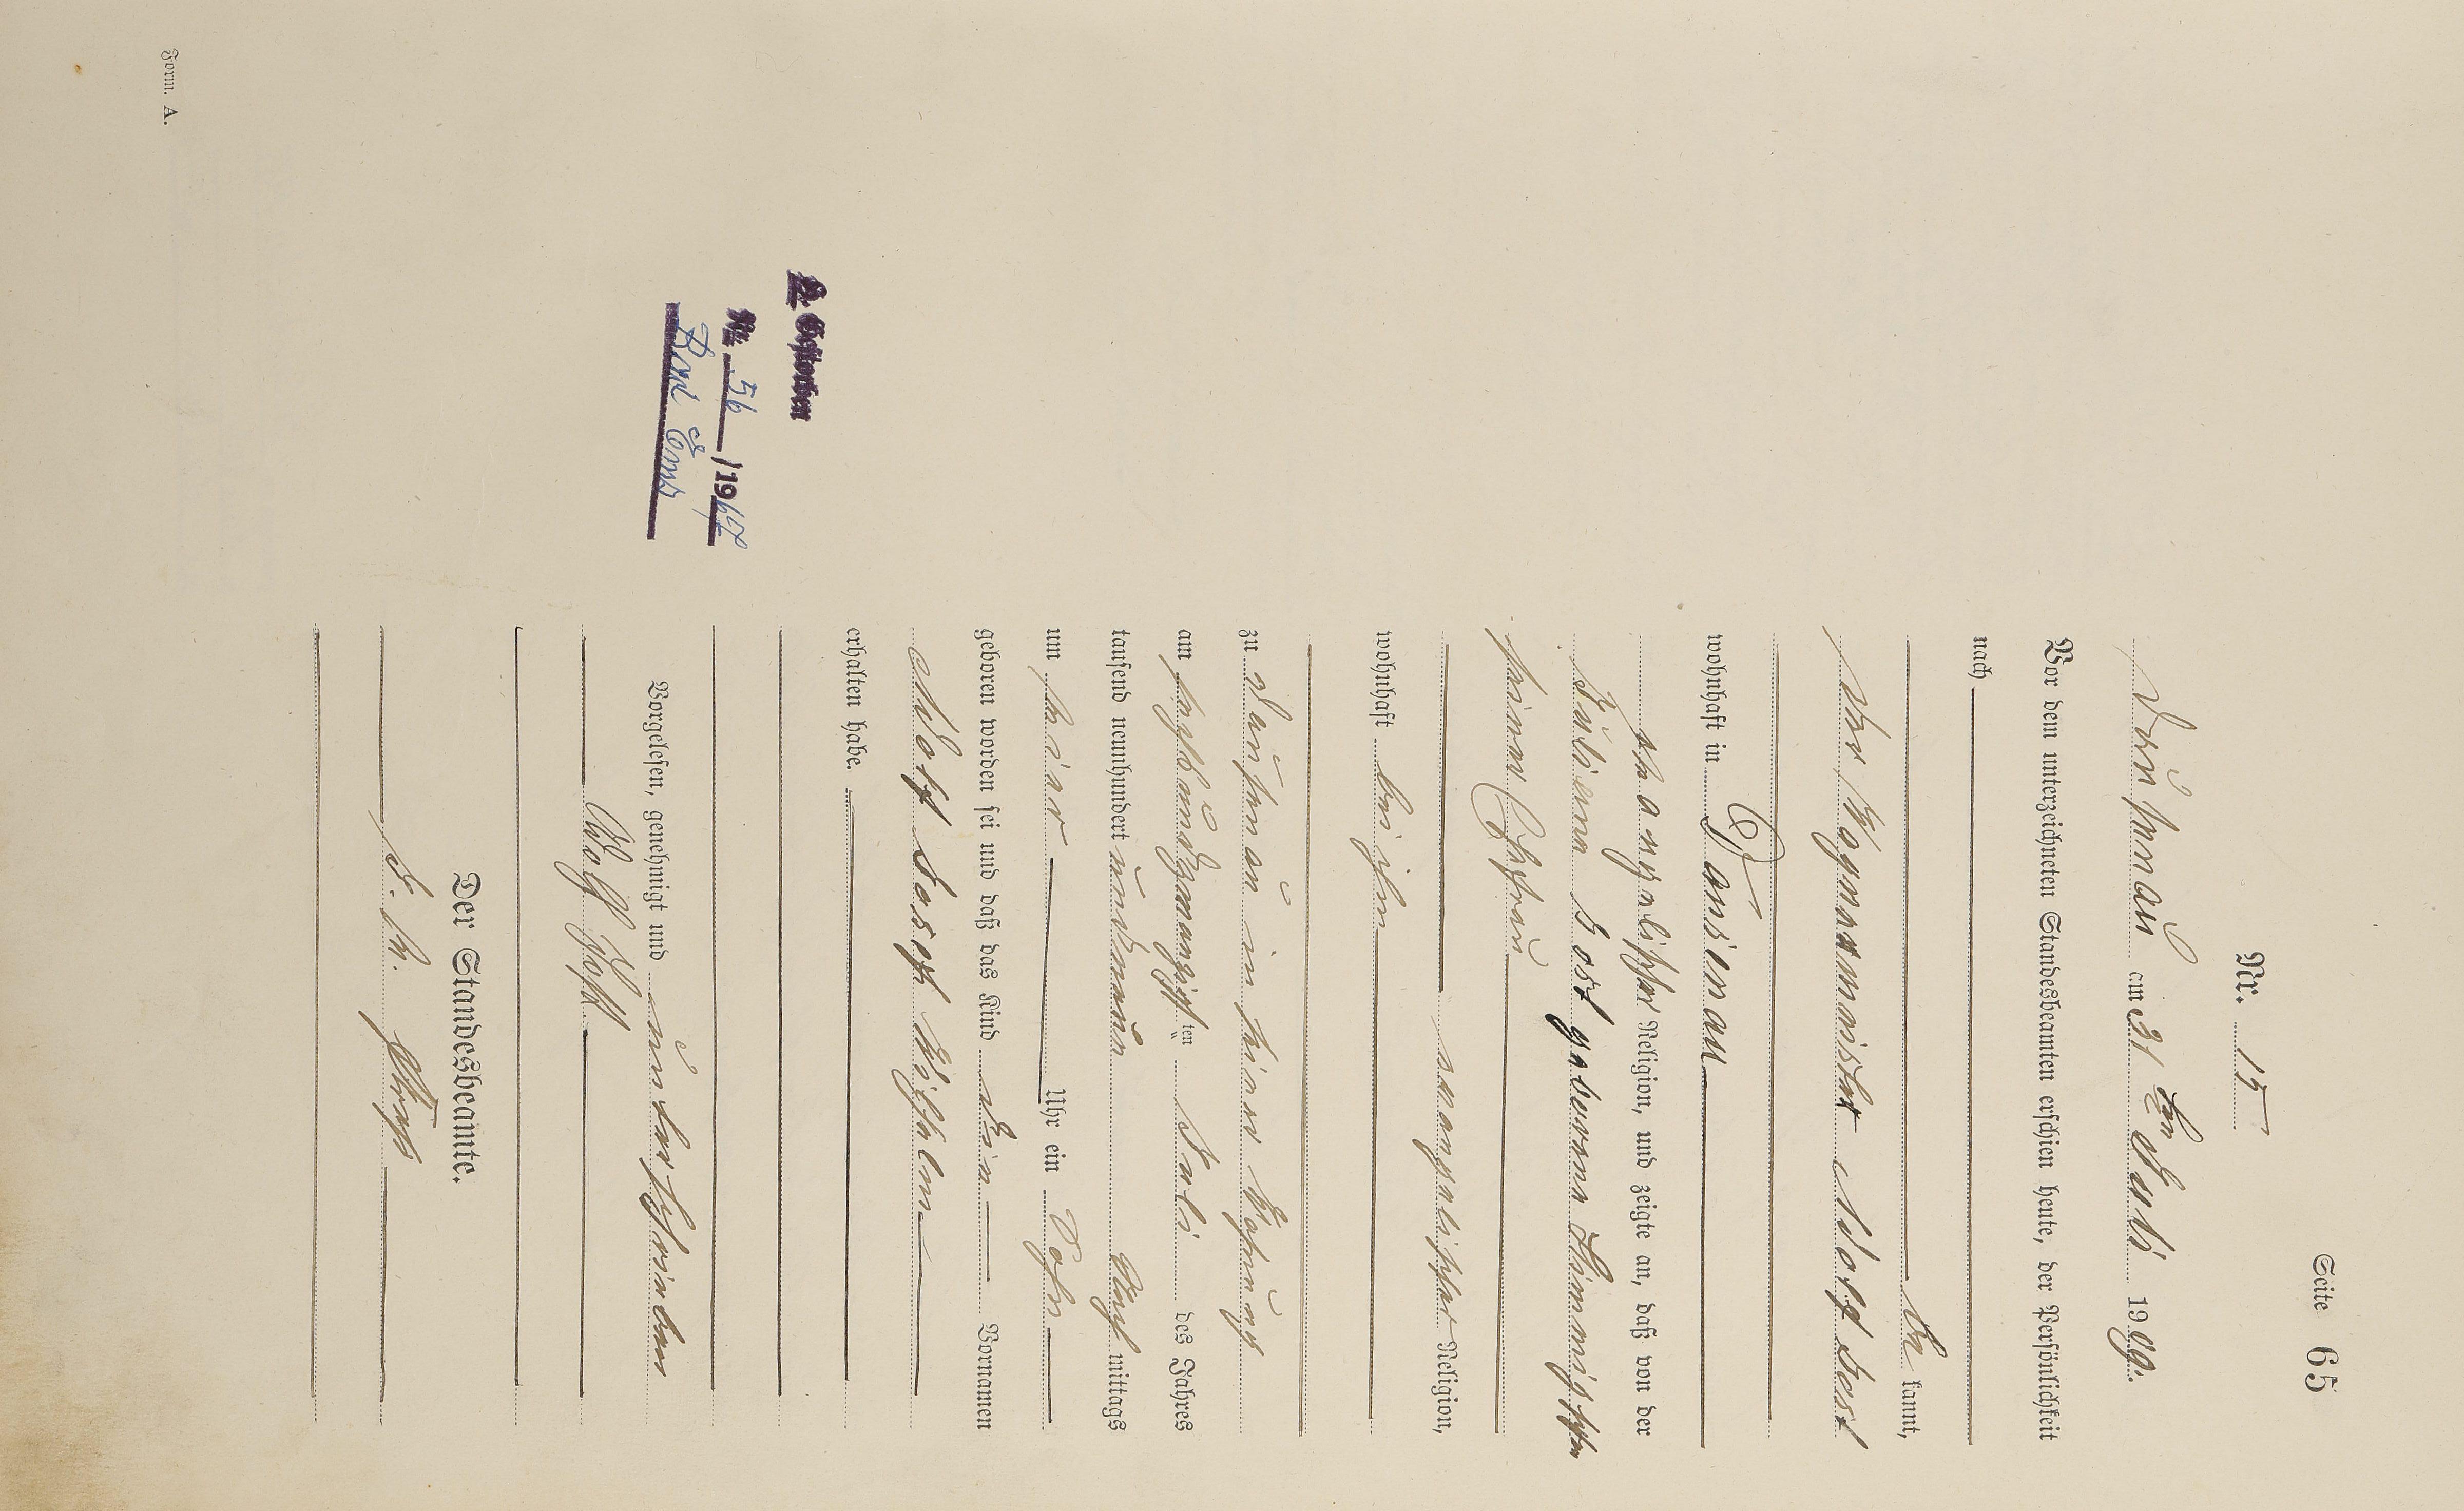 Seite 65
Nr. 15
Dausenau am 31 ten Juli 1909.
Vor dem unterzeichneten Standesbeamten erschien heute, der Persönlichkeit
nach
be kannt,
der Wagnermeister Adolf Jost
wohnhaft in Dausenau
evangelischer Religion, und zeigte an, daß von der
Juliena Jost geborene
seiner Ehefrau
evangelischer Religion,
wohnhaft bei ihm
zu Dausenau in seiner Wohnung
am sechsundzwanzigsten Juli des Jahres
tausend neunhundert und neun Nach mittags
um Uhr ein Sohn
geboren worden sei und daß das Kind die Vornamen
Adolf Josef Wilhelm
erhalten habe.
Vorgelesen, genehmigt und unterschrieben
Adolf Jost
Der Standesbeamte.
2. Gestorben
Nr. 56 /1967
Bad Ems
Form. A.